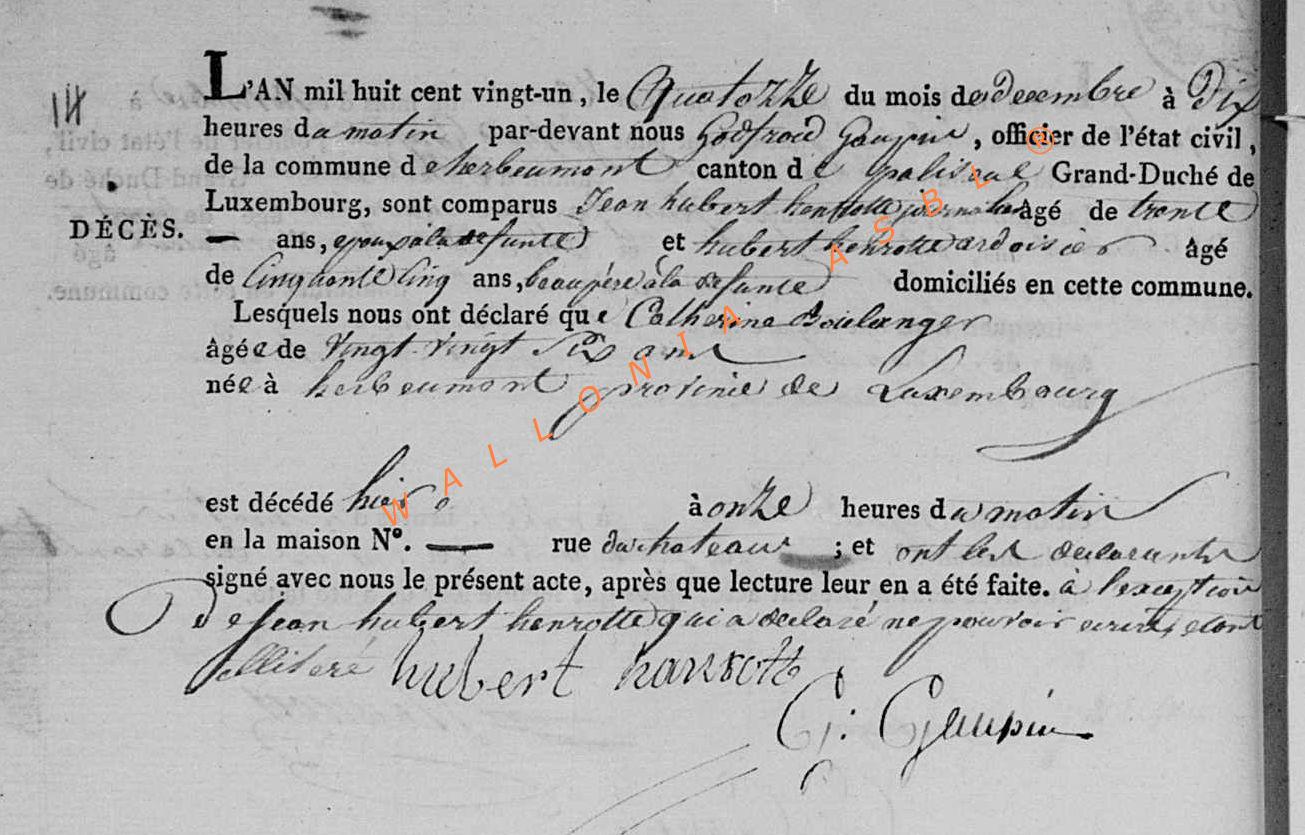 L'AN mil huit cent vingt-un, le Quatozze du mois de decembre à Dix
heures du matin par-devant nous Godfroid Gaupin, officier de l'état civil,
de la commune d'herbeumont canton de paliseul Grand-Duché de
Luxembourg, sont comparus Jean hubert henrotte journalier âgé de trente
DÉCÈS. — ans, epoux à la defunte et hubert henrotte ardoisier âgé
de Cinquante Cinq ans, beaupére à la defunte domiciliés en cette commune.
Lesquels nous ont déclaré que Catherine Boulanger
âgée de Vingt-Vingt Six ans
née à herbeumont province de Luxembourg
est décédé hier à onze heures du matin
en la maison N°. — rue du chateau ; et ont les declarants
signé avec nous le présent acte, après que lecture leur en a été faite. à l'exception
de Jean hubert henrotte qui a declaré ne pouvoir ecrire etant
illiteré hubert hanrotte
G: Gaupin
WALLONIA ASBL ®